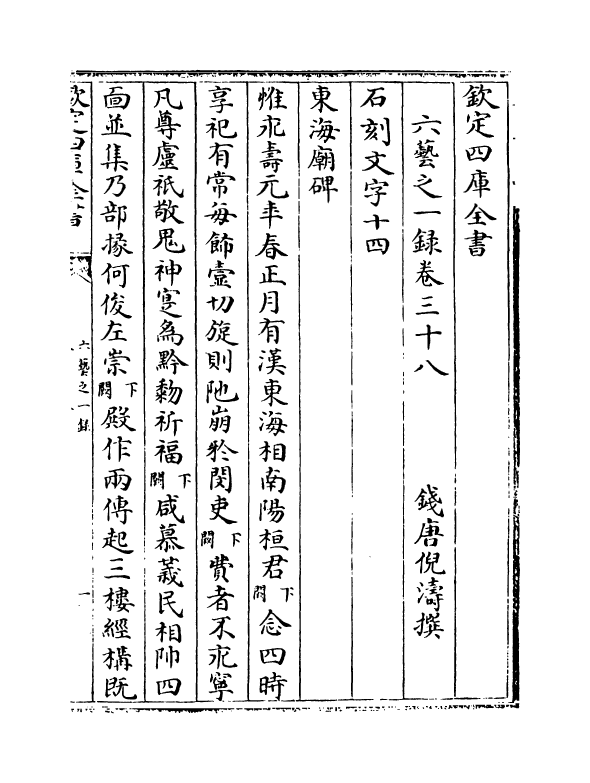 欽定四庫全書
六藝之一録卷三十八　錢唐倪濤撰
石刻文字十四
東海廟碑
惟永壽元年春正月有漢東海相南陽桓君下闕念四時
享祀有常每飾壺切旋則阤崩於閔吏下闕費者不永寧
凡尊虛祇敬鬼神寔為黔黎祈福下闕咸慕義民相帥四
面並集乃部掾何俊左崇下闕殿作兩傳起三樓經構既
六藝之一録
一